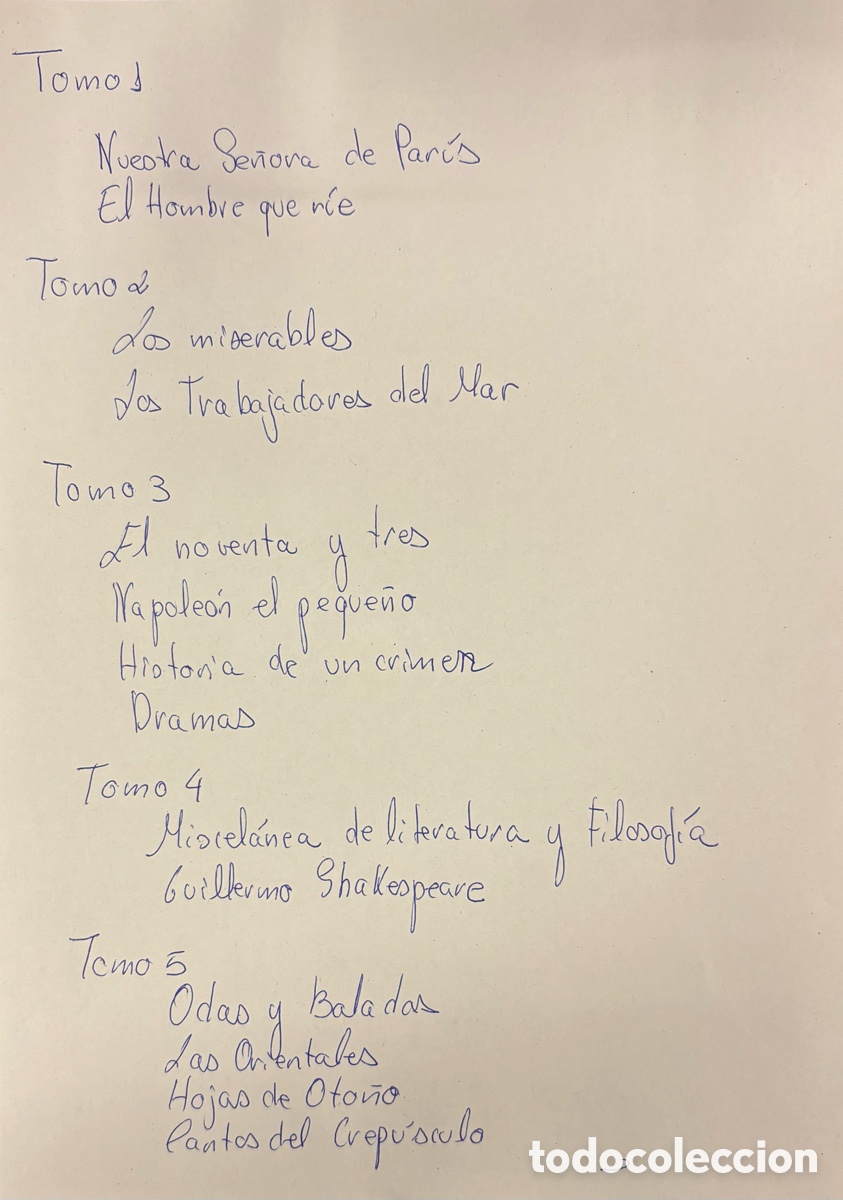 Tomo 1
Nuestra Señora de París
El Hombre que ríe
Tomo 2
Los miserables
Los Trabajadores del Mar
Tomo 3
El noventa y tres
Napoleón el pequeño
Historia de un crimen
Dramas
Tomo 4
Miscelánea de literatura y Filosofía
Guillermo Shakespeare
Tomo 5
Odas y Baladas
Las Orientales
Hojas de Otoño
Cantos del Crepúsculo
todocoleccion